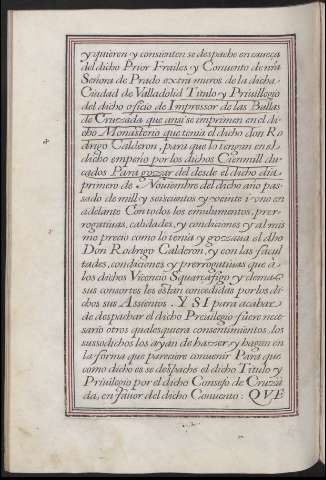 y quieren y consienten se despache en caueça
del dicho Prior Frailes y Conuento de nra
Señora de Prado extra muros de la dicha
Ciudad de Valladolid Titulo y Priuillegio
del dicho oficio de Impressor de las Bullas
de Cruzada que ansi se imprimen en el di
cho Monasterio que tenia el dicho don Ro
drigo Calderon, para que lo tengan en el
dicho empeño por los dichos Cienmill du
cados Para gozzar del desde el dicho dia
primero de Nouiembre del dicho año pas
sado de mill y seiscientos y veinte i vno en
adelante Con todos los emulumentos, prer
rogatiuas, calidades, y condiciones y al mis
mo precio como lo tenia y gozzaua el dho
Don Rodrigo Calderon, y con las facul
tades, condiciones y prerrogatiuas que à
los dichos Vicencio Squarçafigo y demas
sus consortes les estan concedidas por los di
chos sus Assientos. Y SI para acabar
de despachar el dicho Preuilegio fuere neces
sario otros qualesquiera consentimientos, los
sussodichos los ayan de hazzer, y hagen en
la forma que pareziere conuenir Para que
como dicho es se despache el dicho Titulo y
Priuilegio por el dicho Consejo de Cruzza
da, en fauor del dicho Conuento: QVE